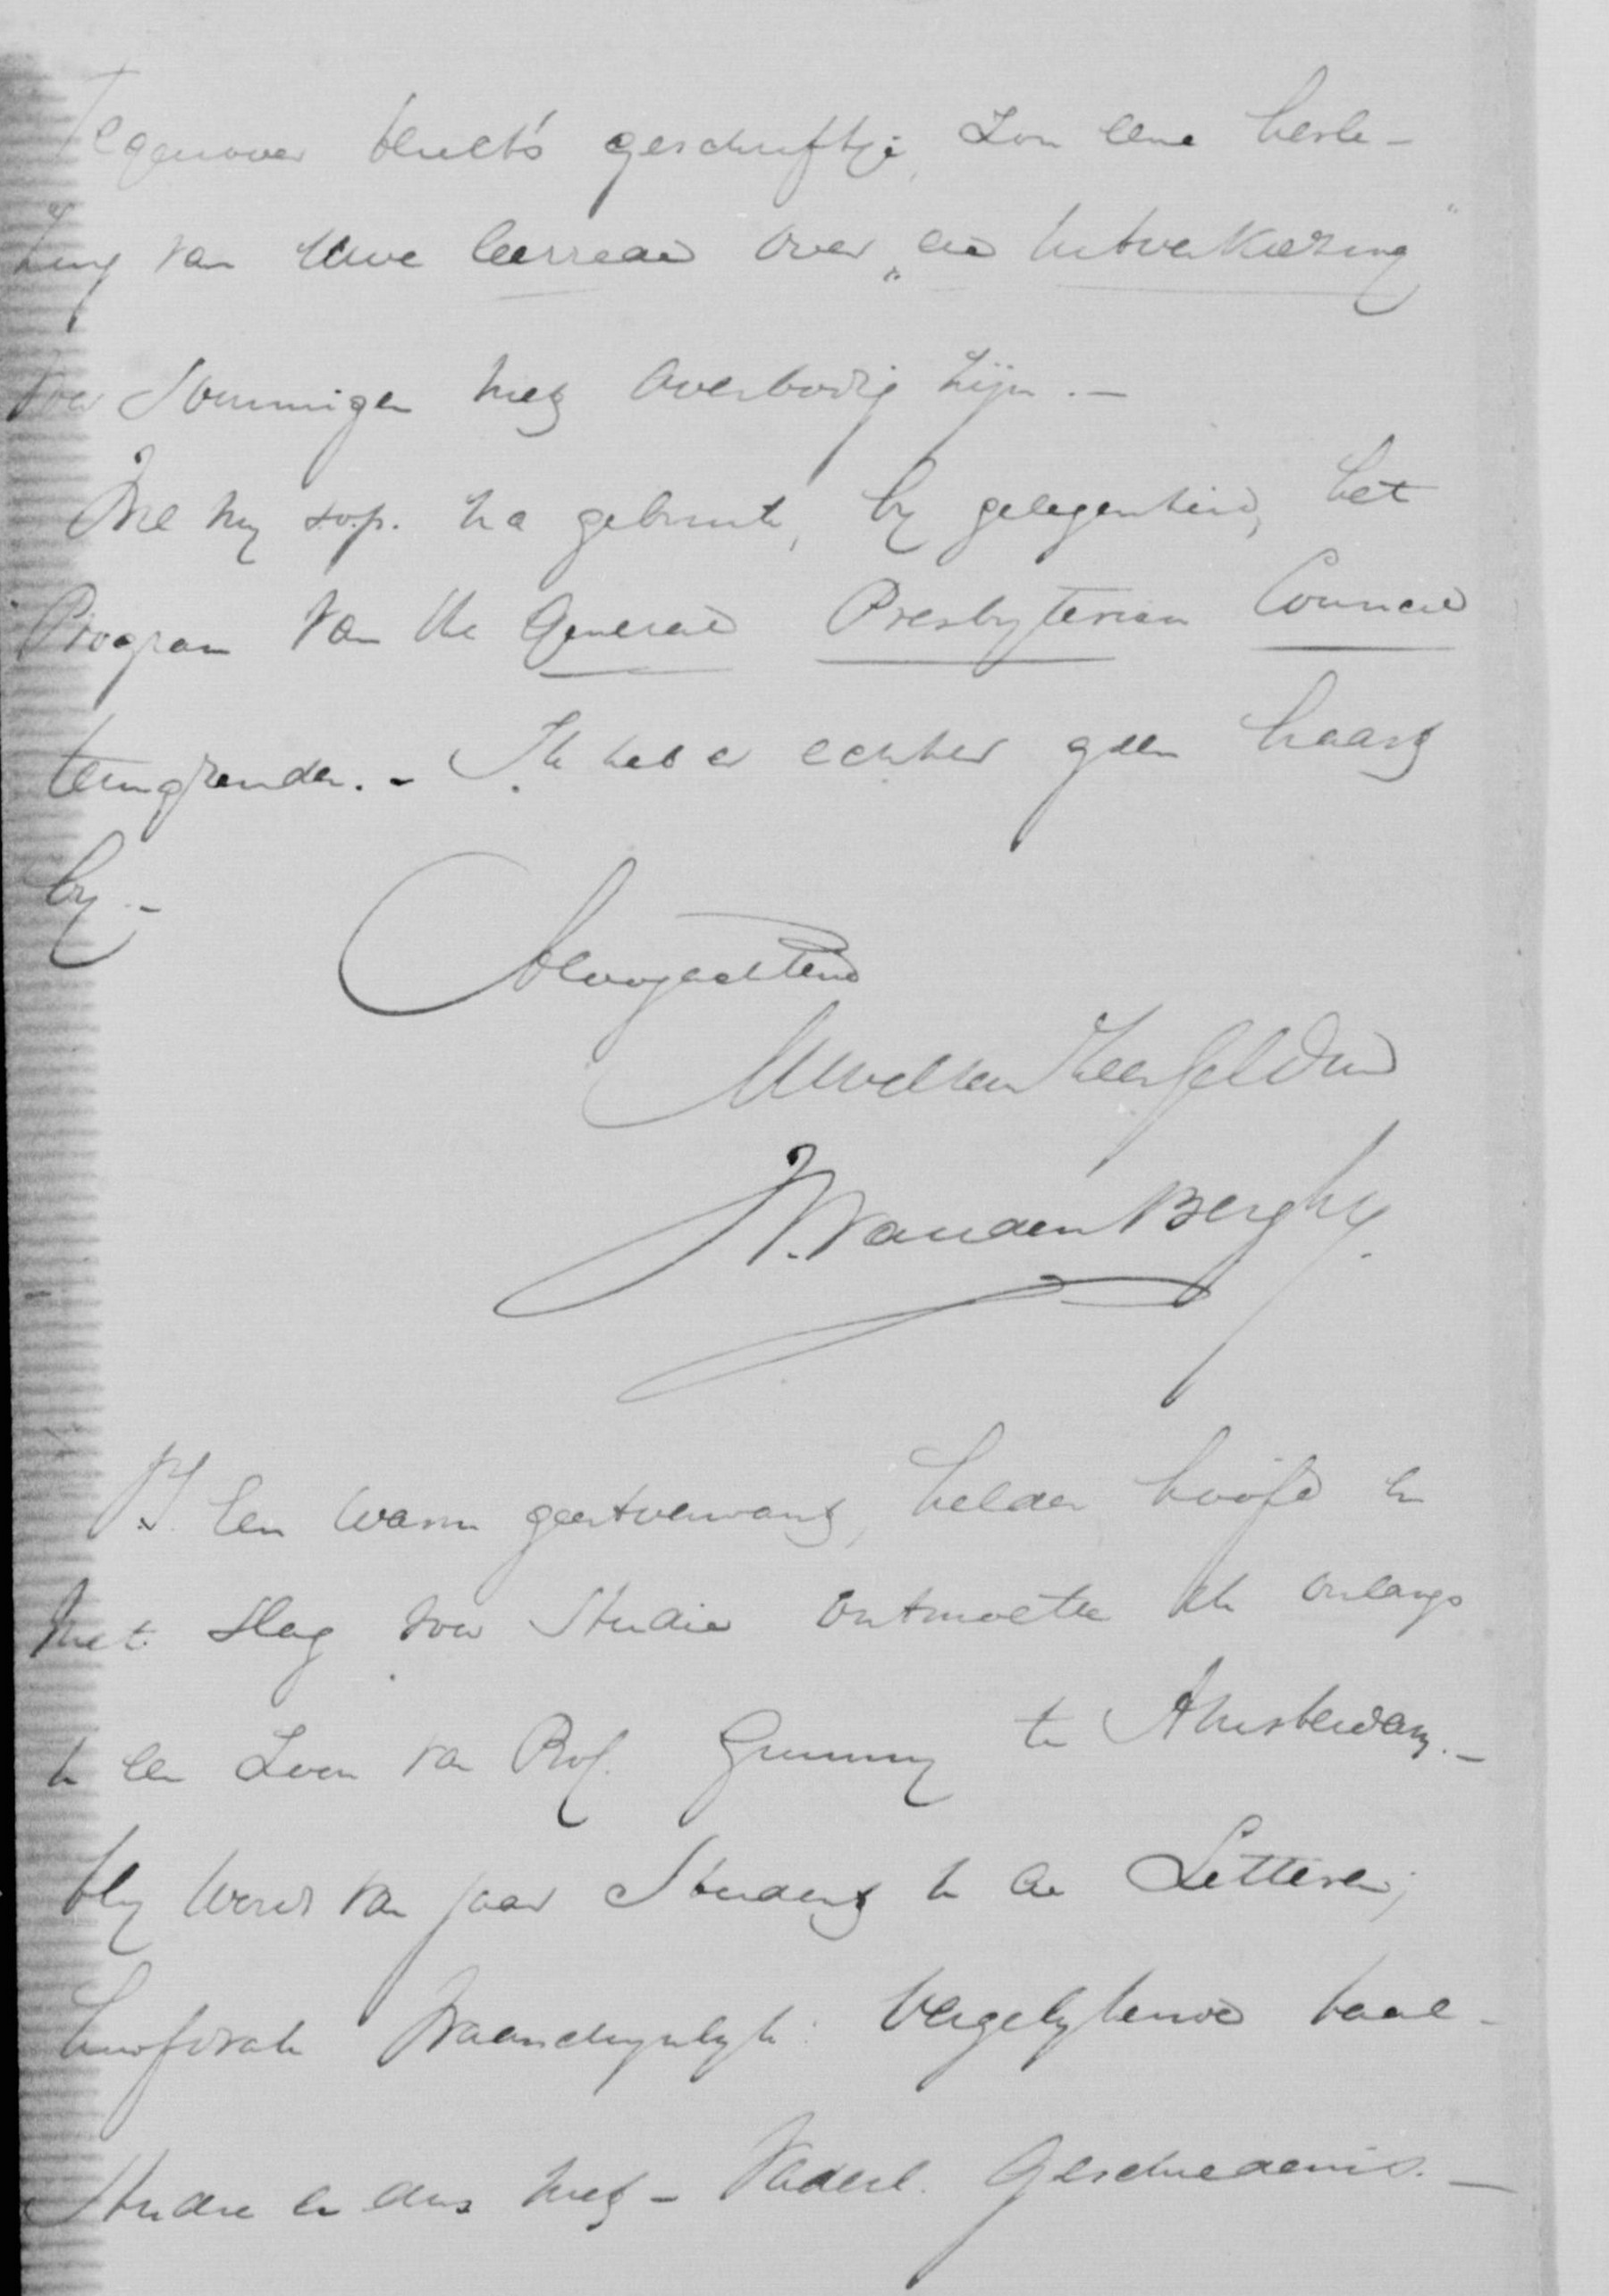 Tegenover Hulst's geschriftje, zou eene herle-
zing van Uwe leerrede over „de Uitverkiezing"
voor Sommigen niet overbodig zijn. –
Wil mij s.v.p. na gebruik, bij gelegenheid, het
Program van the General Presbyterian Council
terugzenden. – Ik heb er echter geen haast
bij. –
Hoogachtend
JW. Vanden Bergh
PS. Een warm geestverwant, helder hoofd en
met slag voor Studie ontmoette ik onlangs
in een Zoon van Prof. te Amsterdam. –
Hij werd van jaar Student in de Letteren;
hoofdvak waarschijnlijk: Vergelijkende taal-
studie en dus niet – Vaderl. Geschiedenis. –